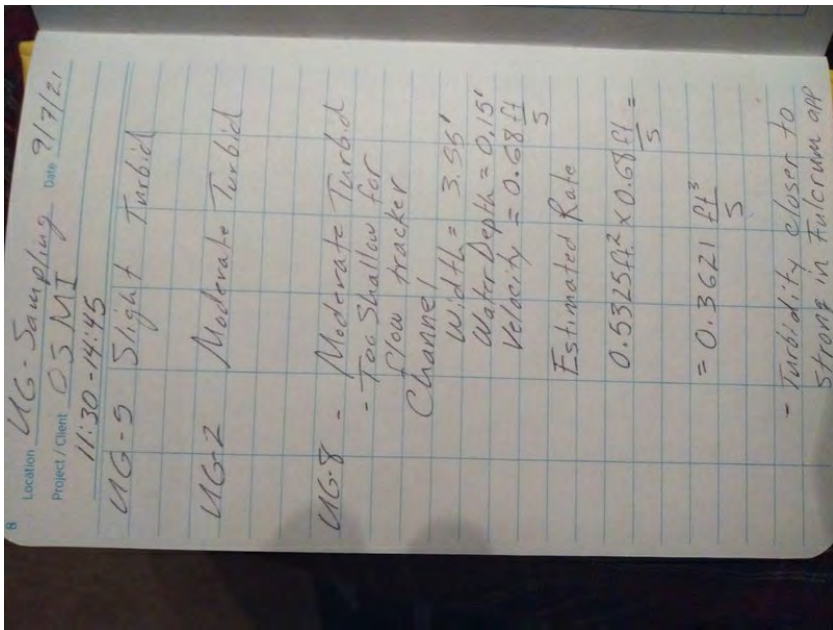 8
Location UG-Sampling Date 9/7/21
Project / Client OSMI
11:30-14:45
UG-5 Slight Turbid
UG-2 Moderate Turbid
UG-8 - Moderate Turbid
- Too Shallow for
flow tracker
Channel
Width = 3.55'
Water Depth = 0.15'
Velocity = 0.68 ft/s
Estimated Rate
0.5325 ft² x 0.68 ft/s =
= 0.3621 ft³/s
- Turbidity closer to
Strong in Fulcrum app